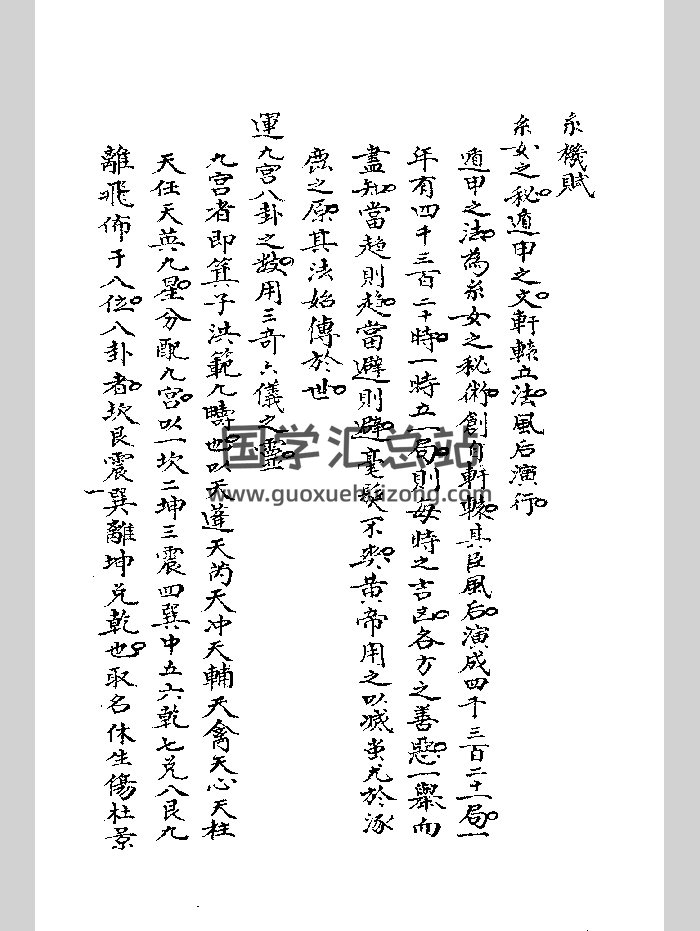 玄機賦
玄女之秘遁甲之文軒轅立法風后演行
遁甲之法為玄女之秘術創自軒轅其臣風后演成四千三百二十局一
年有四千三百二十時一時立一局則每時之吉凶各方之善惡一舉而
盡知當趋則趋當避則避毫髮不爽黄帝用之以滅蚩尤於涿
鹿之原其法始傳於世
運九宫八卦之数用三奇六儀之靈
九宫者即箕子洪範九疇也以天蓬天芮天冲天輔天禽天心天柱
天任天英九星分配九宫以一坎二坤三震四巽中五六乾七兑八艮九
離飛佈于八位八卦者坎艮震巽離坤兑乾也取名休生傷杜景
国学汇总站
www.guoxuehuizong.com